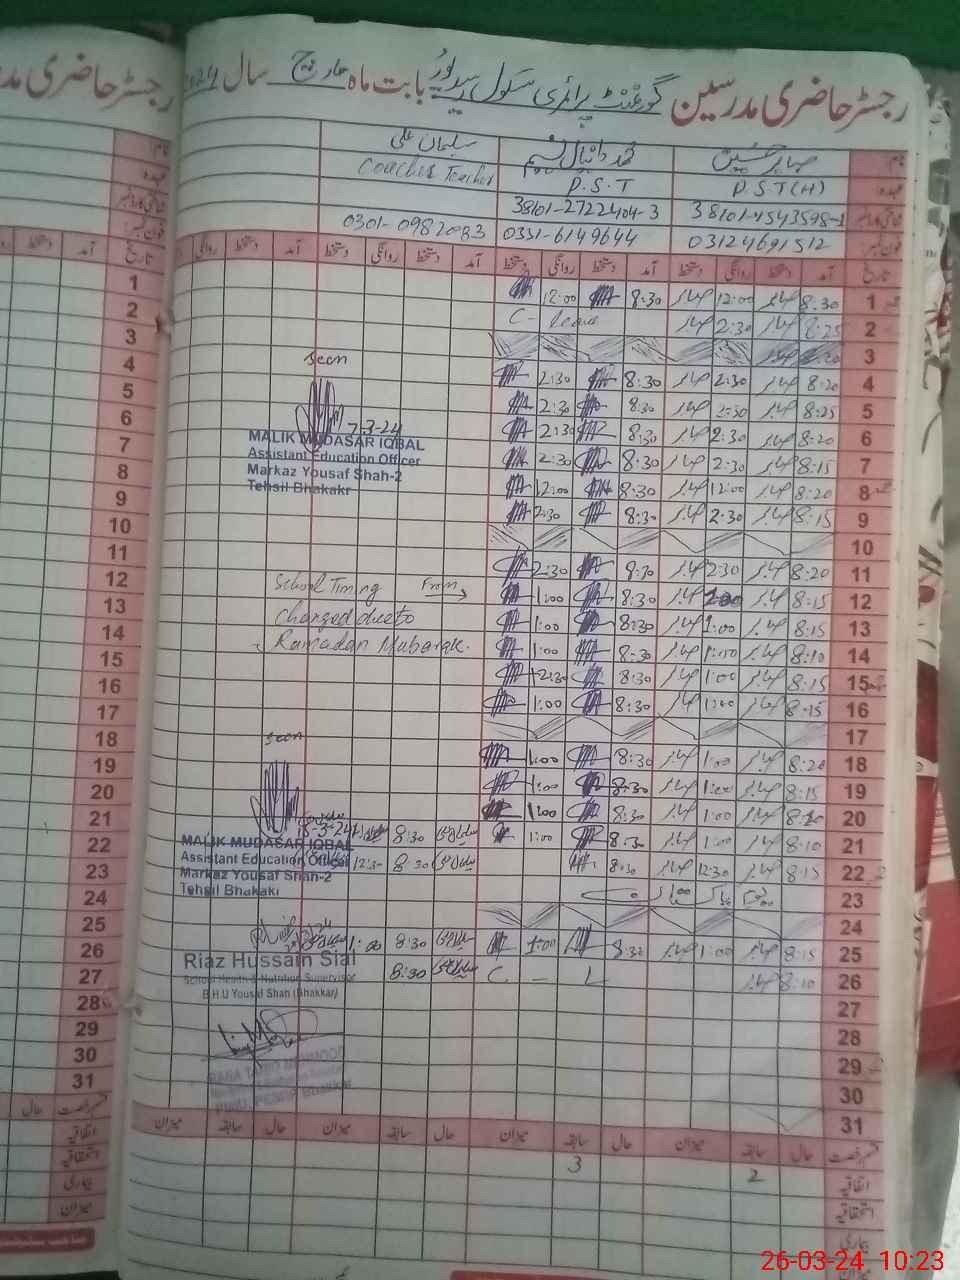 رجسٹر حاضری مدرسین گورنمنٹ پرائمری سکول سیدپور بابت ماہ مارچ سال 2024
نام: صابر حسین محمد دانیال نسیم سلیمان علی
عہدہ P.S.T(H) P.S.T Coaches Teacher
شناختی کارڈ نمبر 38101-4543598-1 38101-2722404-3
فون نمبر: 03124691512 0331-6149644 0301-0982083
تاریخ آمد دستخط روانگی دستخط آمد دستخط روانگی دستخط آمد دستخط روانگی دستخط آمد
1 8:30 صابر 12:00 صابر 8:30 12:00
2 8:25 صابر 2:30 صابر C- leave
3
4 8:20 صابر 2:30 صابر 8:30 2:30
5 8:25 صابر 2:30 صابر 8:30 2:30
6 8:20 صابر 2:30 صابر 8:30 2:30
7 8:15 صابر 2:30 صابر 8:30 2:30
8 8:20 صابر 12:00 صابر 8:30 12:00
9 8:15 صابر 2:30 صابر 8:30 2:30
10
11 8:20 صابر 2:30 صابر 8:30 2:30
12 8:15 صابر 1:00 صابر 8:30 1:00
13 8:15 صابر 1:00 صابر 8:30 1:00
14 8:10 صابر 1:00 صابر 8:30 1:00
15 8:15 صابر 1:00 صابر 8:30 12:30
16 8:15 صابر 1:00 صابر 8:30 1:00
17
18 8:20 صابر 1:00 صابر 8:30 1:00
19 8:15 صابر 1:00 صابر 8:30 1:00
20 8:20 صابر 1:00 صابر 8:30 1:00
21 8:10 صابر 1:00 صابر 8:30 1:00 8:30
22 8:15 صابر 12:30 صابر 8:30 8:30 12:30
23 یوم پاکستان
24
25 8:15 صابر 1:00 صابر 8:30 1:00 8:30 1:00
26 8:10 صابر C - L 8:30
27
28
29
30
31
seen
7-3-24
MALIK MUDASAR IQBAL
Assistant Education Officer
Markaz Yousaf Shah-2
Tehsil Bhakakr
School Timing From
changed due to
Ramadan Mubarak.
seen
MALIK MUDASAR IQBAL
Assistant Education Officer
Markaz Yousaf Shah-2
Tehsil Bhakakr
Riaz Hussain Sial
School Health & Nutrition Supervisor
B.H.U Yousaf Shah (Bhakkar)
قسم رخصت حال سابقہ میزان حال سابقہ میزان حال سابقہ میزان حال سابقہ میزان
اتفاقیہ 2 3
استحقاقیہ
بیماری
میزان
رجسٹر حاضری مدر
نام:
عہدہ
شناختی کارڈ نمبر
فون نمبر:
تاریخ آمد دستخط روانگی
1
2
3
4
5
6
7
8
9
10
11
12
13
14
15
16
17
18
19
20
21
22
23
24
25
26
27
28
29
30
31
قسم رخصت حال
اتفاقیہ
استحقاقیہ
بیماری
میزان
26-03-24 10:23